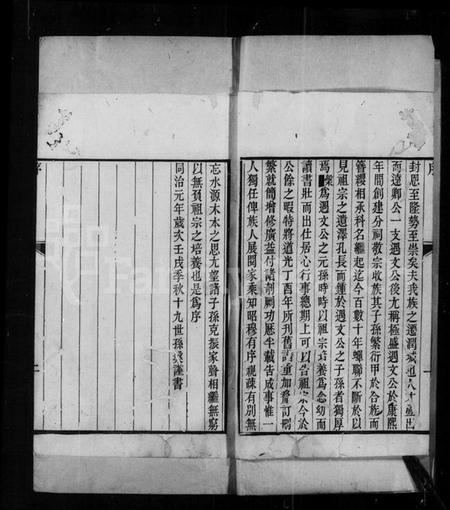 序
封恩至隆勢至崇矣夫我族之遷潤城也八十歲出
而遠卿公一支遇文公後尤稱極盛遇文公於康熙
年間創建分祠敬宗收族其子孫繁衍甲於合族而
簪纓相承科名繼起迄今百數十年蟬聯不斷於以
見祖宗之遺澤孔長而鍾於遇文公之子孫者獨厚
焉 爲遇文公之元孫時時以祖宗培養爲念幼而
讀書壯而出仕居心行事總期上可以告祖宗今於
公餘之暇特將道光丁酉年所刊舊譜重加釐訂刪
繁就簡增修廣益付諸剞劂功歷半載告成事惟一
人獨任俾族人展閱家乘知昭穆有序親疎有別無
忘水源木本之思尤望諸子孫克振家聲相繼無窮
以無負祖宗之培養也是爲序
同治元年歲次壬戌季秋十九世孫 謹書
序